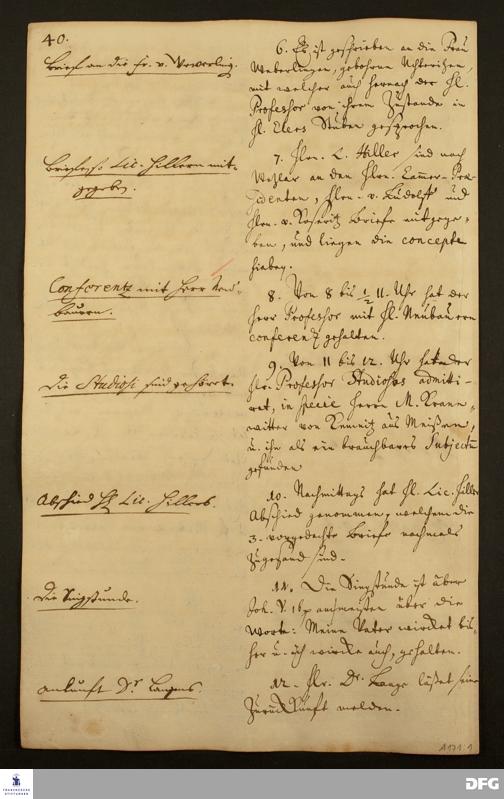 40.
Brief an die Fr. v.
6. Es ist geschrieben an die Frau
gebohrne
mit welcher auch hernach der H.
Professor von ihrem Zustande in
H. Elers Stuben gesprochen.
Briefe Lic. Hillern mit-
gegeben.
7. Hrn. L. Hiller sind nach
Wezlar an den Hrn. Cammer-Prae-
sidenten, Hrn. v. und
Hrn. v. Briefe mitgege-
ben, und liegen die concepte
hiebey.
Conferentz mit Herr Neu-
bauern.
8. Von 8 bis 1/2 11. Uhr hat der
Herr Professor mit H. Neubauern
conferentz gehalten.
Die Studiosi sind gehöret.
9. Von 11 bis 12. Uhr hat der
Hr. Professor Studiosos admitti-
ret, in specie Herrn M.
witter von aus Meißen,
u. ihn als ein brauchbares Subjectum
gefunden
Abschied H. Lic. Hillers.
10. Nachmittags hat H. Lic. Hiller
Abschied genommen, welchem die
3. vorgedachte Briefe nachmals
zugesand sind.
Die Singstunde.
11. Die Singstunde ist über
Joh. V. 16 über die
Worte: Meine Vater wircket bis-
her u. ich wircke auch, gehalten.
Ankunft Dr. Langens.
12. Hr. Dr. Lange läßet seine
Zurückkunft melden.
A 171:1
FRANCKESCHE
STIFTUNGEN
DFG